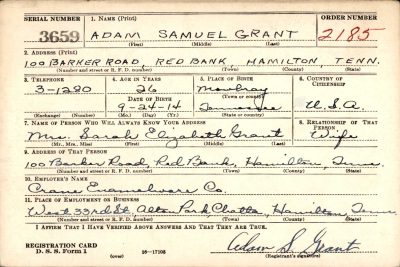 SERIAL NUMBER 1. NAME (Print) ORDER NUMBER
3659 ADAM SAMUEL GRANT 2185
(First) (Middle) (Last)
2. ADDRESS (Print)
100 BARKER ROAD, RED BANK HAMILTON, TENN.
(Number and street or R. F. D. number) (Town) (County) (State)
3. TELEPHONE 4. AGE IN YEARS 5. PLACE OF BIRTH 6. COUNTRY OF CITIZENSHIP
3-1280 26 Mowbray
DATE OF BIRTH (Town or county)
9-24-14 Tennessee U.S.A
(Exchange) (Number) (Mo.) (Day) (Yr.) (State or country)
7. NAME OF PERSON WHO WILL ALWAYS KNOW YOUR ADDRESS 8. RELATIONSHIP OF THAT PERSON
Mrs. Sarah Elizabeth Grant Wife
(Mr., Mrs., Miss) (First) (Middle) (Last)
9. ADDRESS OF THAT PERSON
100 Barker Road, Red Bank, Hamilton, Tenn.
(Number and street or R. F. D. number) (Town) (County) (State)
10. EMPLOYER'S NAME
Crane Enamelware Co.
11. PLACE OF EMPLOYMENT OR BUSINESS
West 33rd St, Alton Park Chatta, Hamilton, Tenn
(Number and street or R. F. D. number) (Town) (County) (State)
I AFFIRM THAT I HAVE VERIFIED ABOVE ANSWERS AND THAT THEY ARE TRUE.
REGISTRATION CARD
D. S. S. Form 1 (over) 16—17105 Adam S. Grant
(Registrant's signature)